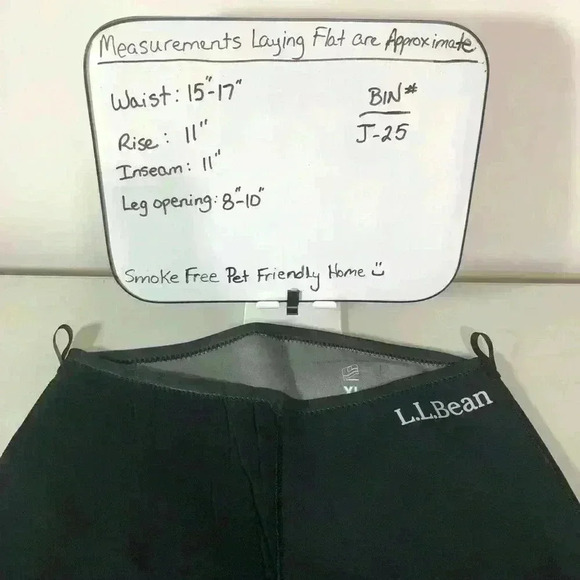 Measurements Laying Flat are Approximate
Waist: 15"-17"
Rise: 11"
Inseam: 11"
Leg opening: 8"-10"
BIN#
J-25
Smoke Free Pet Friendly Home
L.L.Bean